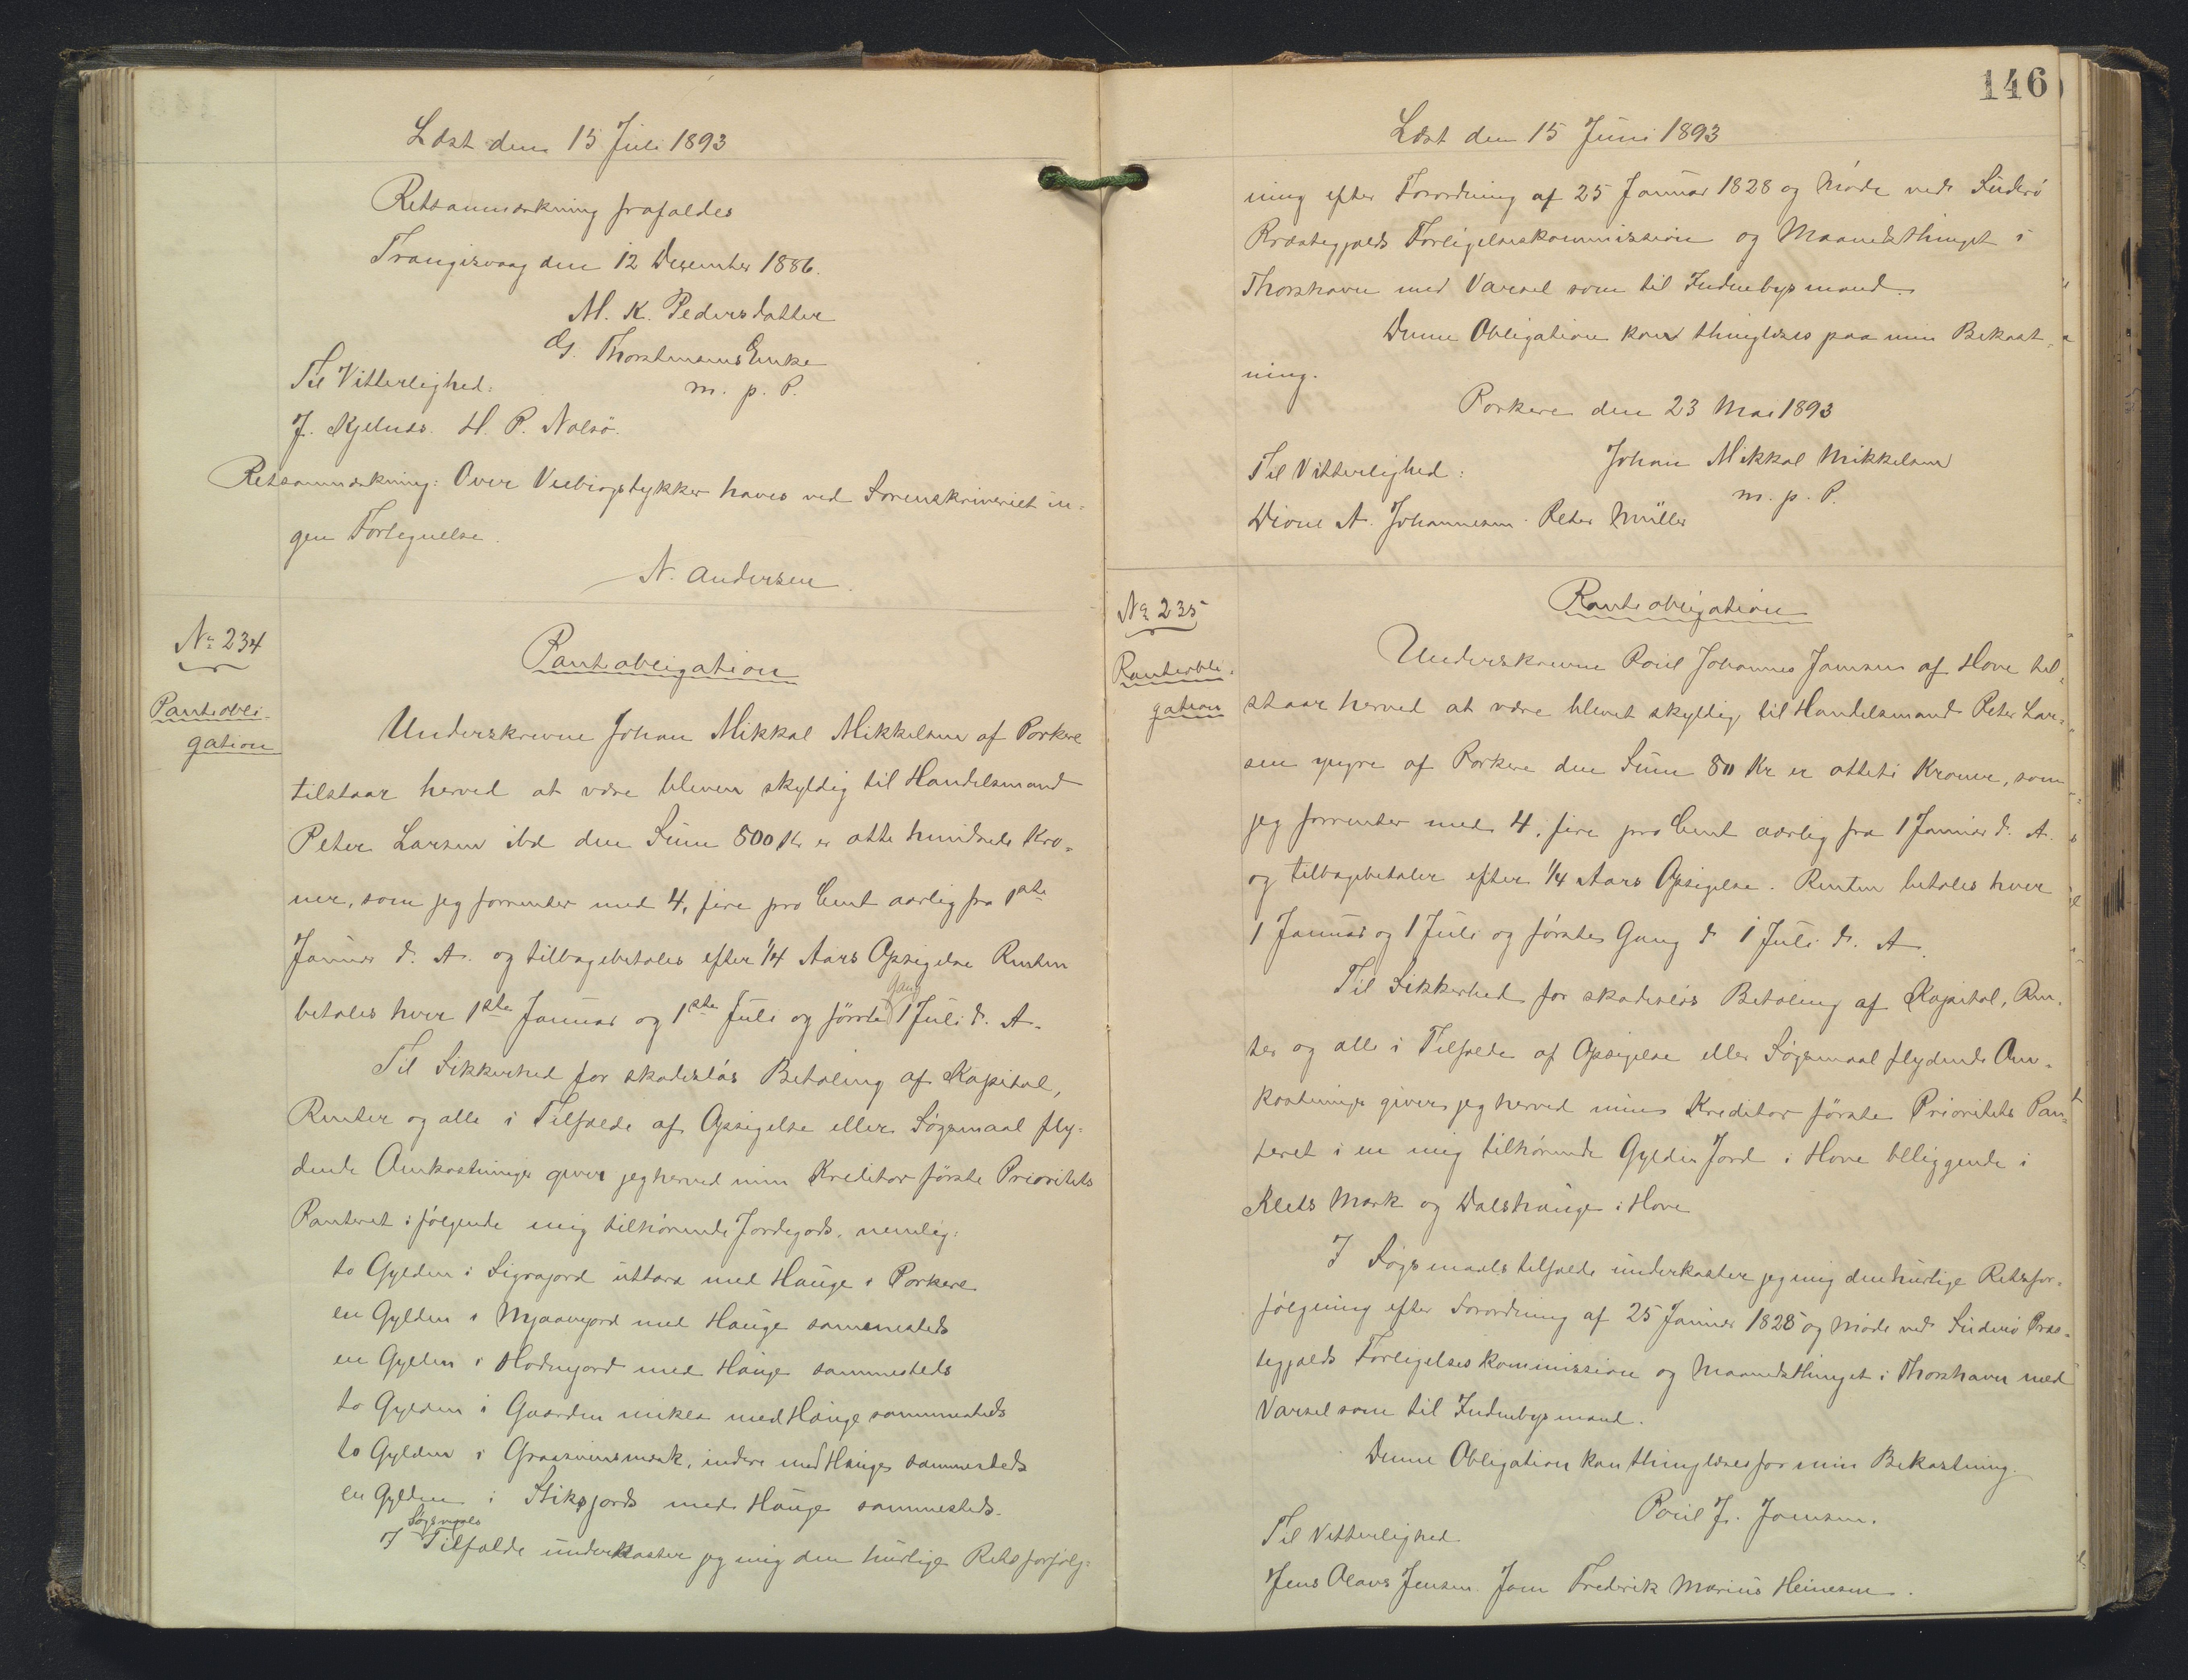 Læst den 15 Juli 1893
Retsanmærkning frafaldes
Trangisvaag den 12 Desember 1886.
M. K. Pedersdatter
G. Thorstensens Enke
m. p. P.
Til Vitterlighed:
J. Kjelnæs. H. P. Nolsø.
Retsanmærkning: Over Veebragstykker haves ved Sorenskriveriet in-
gen Fortegnelse.
N. Andersen.
No 234
Pantobli-
gation
Pantobligation
Underskrevne Johan Mikkal Mikkelsen af Porkere
tilstaar herved at være bleven skyldig til Handelsmand
Peter Larsen ibd den Sum 800 Kr er otte hundrede Kro-
ner, som jeg forrenter med 4, fire pro Cent aarlig fra 1ste
Januar d. A. og tilbagebetales efter 1/4 Aars Opsigelse Renten
betales hver 1ste Januar og 1ste Juli og første Gang 1 Juli d. A.
Til Sikkerhed for skadesløs Betaling af Kapital,
Renter og alle i Tilfælde af Opsigelse eller Søgsmaal fly-
dende Omkostninger giver jeg herved min Kreditor første Prioritets
Panteret i følgende mig tilhørende Jordegods, nemlig:
to Gylden i Sigrajord uttara med Hauge i Porkere
en Gylden i Mjaavajord med Hauge sammesteds
en Gylden i Hodnajord med Hauge sammesteds
to Gylden i Gaarden mikla med Hauge sammesteds
to Gylden i Graasvinsmærk, indere med Hauge sammesteds
en Gylden i Stiksjords med Hauge sammesteds.
I Søgsmaals Tilfælde underkaster jeg mig den hurtige Retsforfølg-
146
Læst den 15 Juni 1893
ning efter Forordning af 25 Januar 1828 og Møde ved Suderø
Præstegjælds Forligelseskommission og Maanedsthinget i
Thorshavn med Varsel som til Indenbysmand.
Denne Obligation kan thinglæses paa min Bekost-
ning.
Porkere den 23 Mai 1893
Johan Mikkal Mikkelsen
m. p. P.
Til Vitterlighed:
Dione A. Johannesen. Peter Müller
No 235
Pantobli-
gation
Pantobligation
Underskrevne Poul Johannes Jamsen af Hove til-
staar herved at være blevet skyldig til Handelsmand Peter Lar-
sen yngre af Porkere den Sum 80 Kr er otteti Kroner, som
jeg forrenter med 4, fire pro Cent aarlig fra 1 Januar d. A.
og tilbagebetaler efter 1/4 Aars Opsigelse. Renten betales hver
1 Januar og 1 Juli og første Gang d 1 Juli d. A.
Til Sikkerhed for skadesløs Betaling af Kapital, Ren-
ter og alle i Tilfælde af Opsigelse eller Søgsmaal flydende Om-
kostninger giver jeg herved min Kreditor første Prioritets Pan-
teret i en mig tilhørende Gylden Jord i Hove beliggende i
Klets Mark og Dalshauge i Hove
I Søgsmaalstilfælde underkaster jeg mig den hurtige Retsfor-
følgning efter Forordning af 25 Januar 1828 og Møde ved Suderø Præs-
tegjælds Forligelses Kommission og Maanedsthinget i Thorshavn med
Varsel som til Indenbysmand.
Denne Obligation kan thinglæses for min Bekostning.
Poul J. Jamsen.
Til Vitterlighed
Jens Olaus Jensen. Joen Frederik Marius Heinesen.